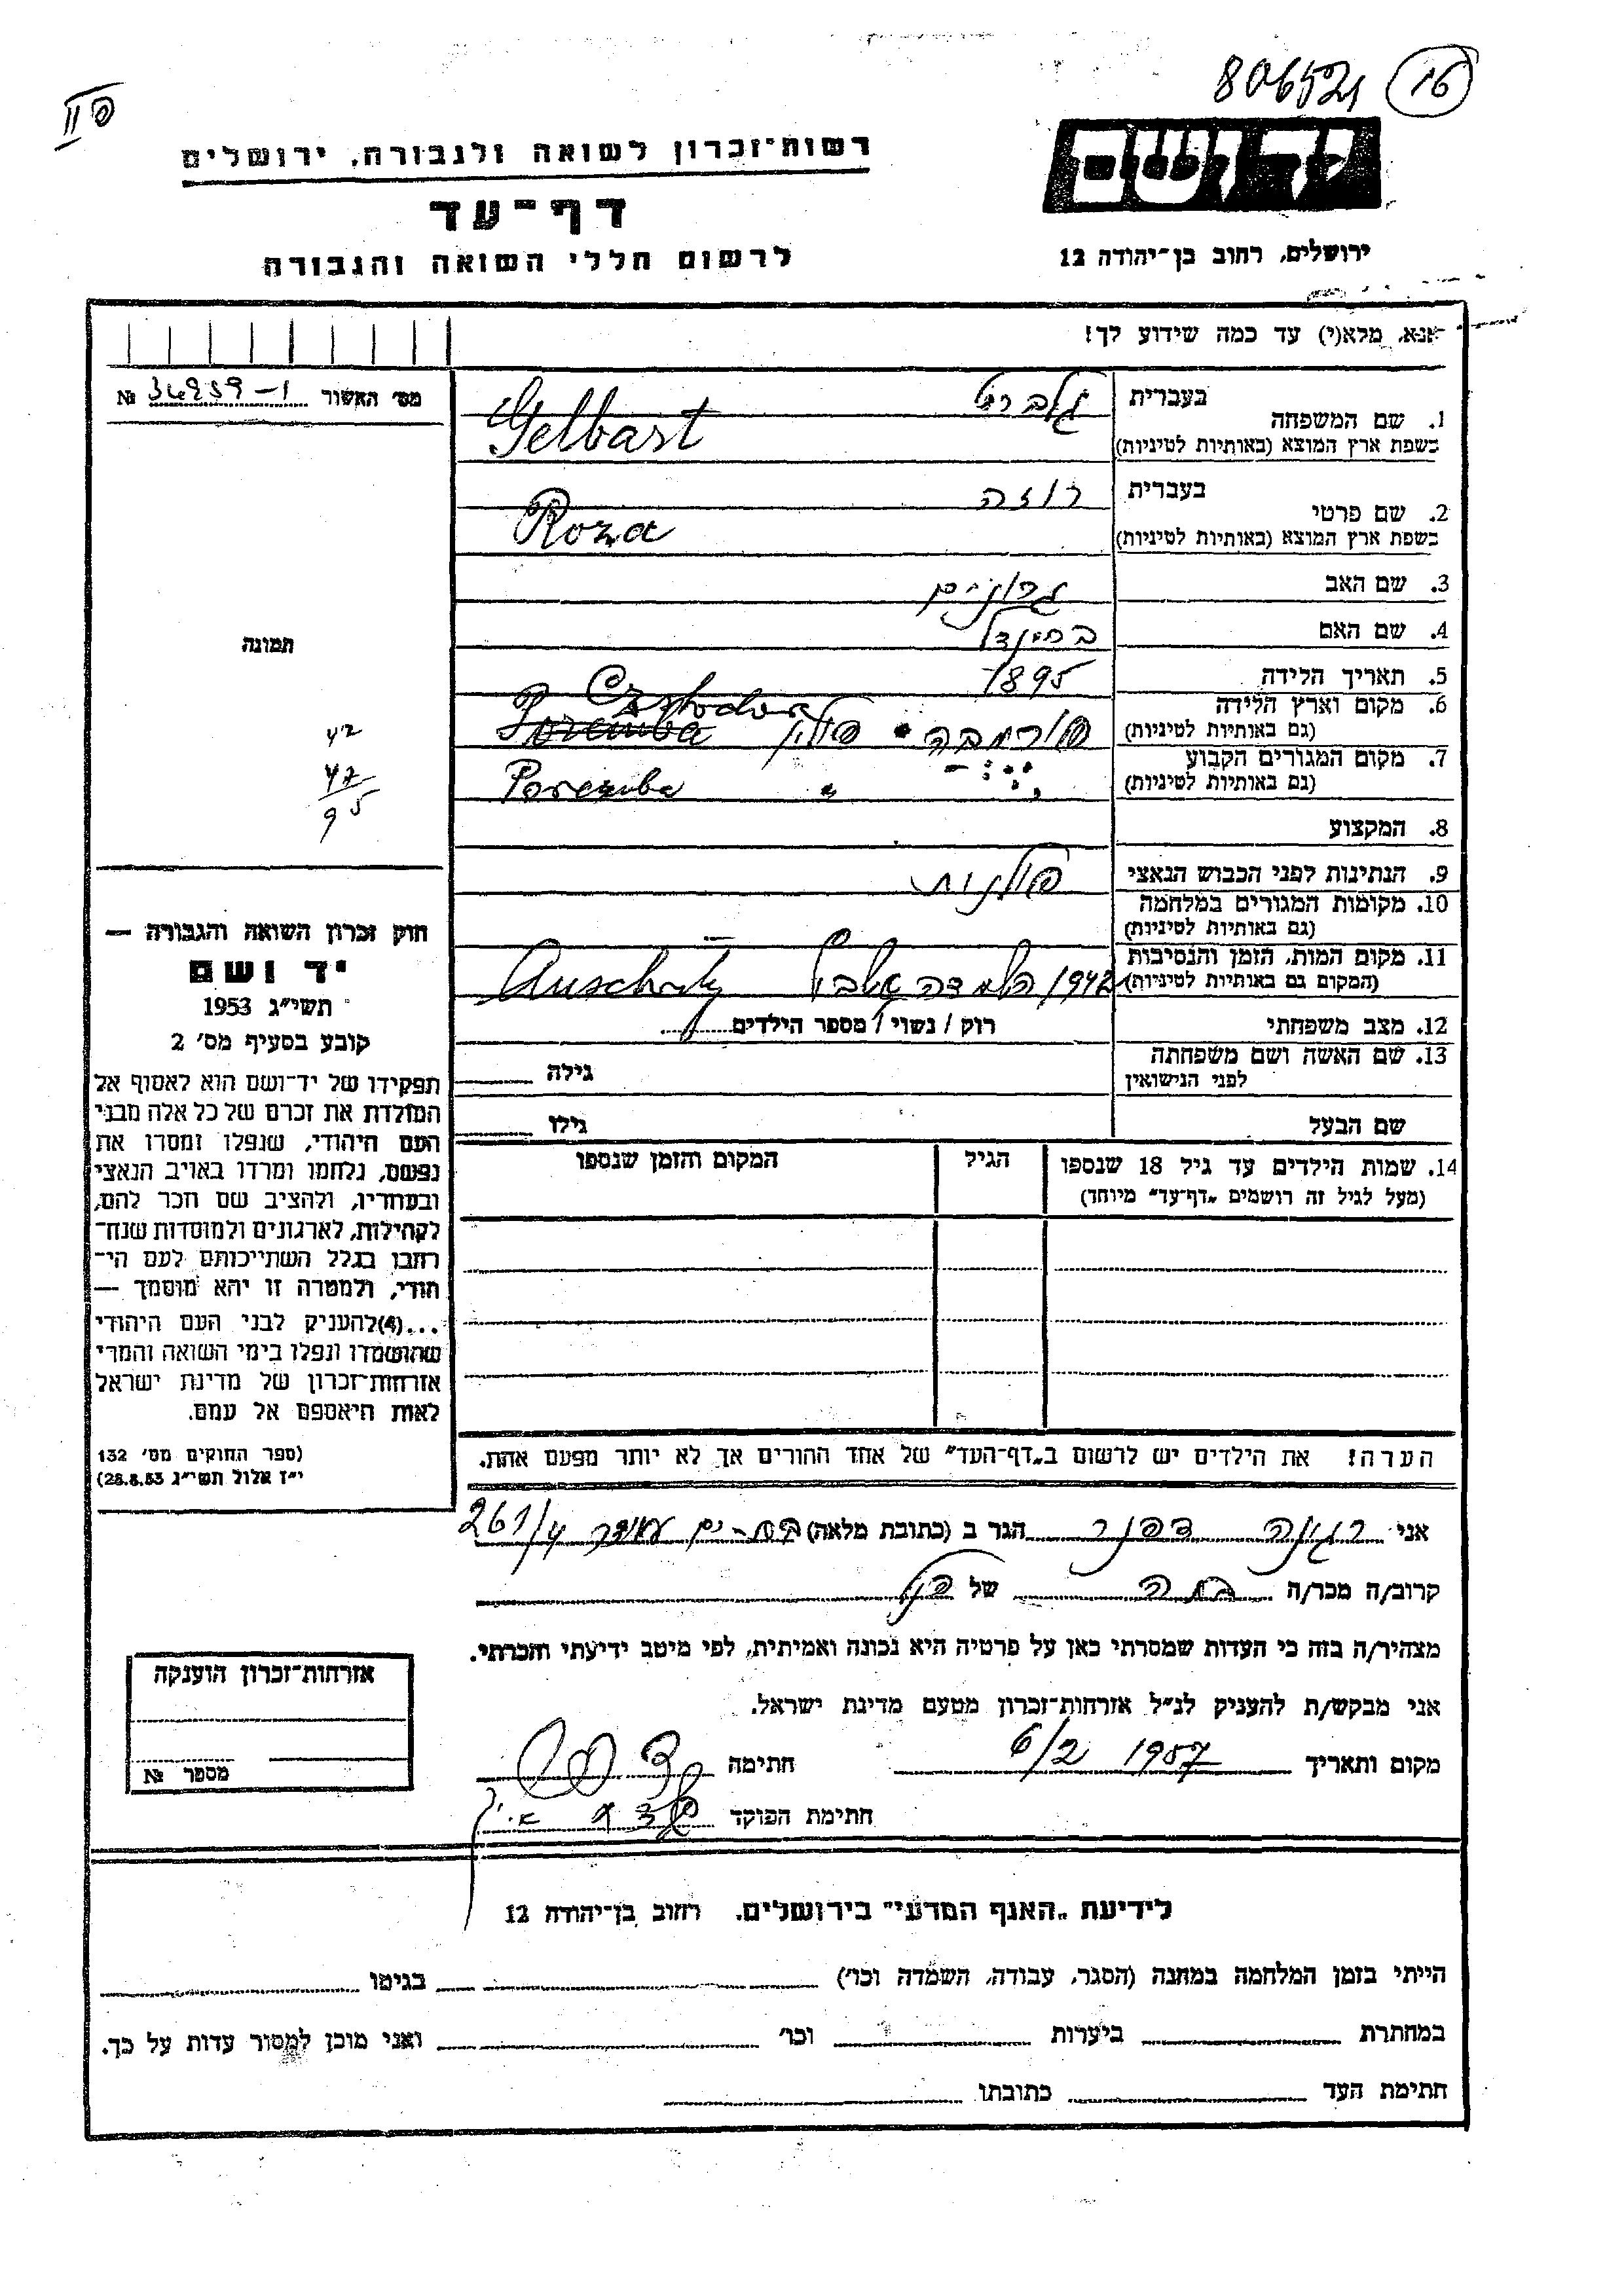 806521 16
פ II
רשות־זכרון לשואה ולגבורה, ירושלים
דף־עד
לרשום חללי השואה והגבורה
ידושם
ירושלים, רחוב בן־יהודה 12
אנא, מלא(י) עד כמה שידוע לך!
מס׳ האשור 36959-1 №
בעברית גלברט
1. שם המשפחה
בשפת ארץ המוצא (באותיות לטיניות) Gelbart
בעברית רוזה
2. שם פרטי
בשפת ארץ המוצא (באותיות לטיניות) Roza
3. שם האב
4. שם האם
5. תאריך הלידה 1895
6. מקום וארץ הלידה
(גם באותיות לטיניות) פורמבה פולין Poremba
7. מקום המגורים הקבוע
(גם באותיות לטיניות) " Poremba
8. המקצוע
9. הנתינות לפני הכבוש הנאצי פולנית
10. מקומות המגורים במלחמה
(גם באותיות לטיניות) —
11. מקום המות, הזמן והנסיבות
(המקום גם באותיות לטיניות) 1942 Auschwitz
12. מצב משפחתי רוק / נשוי / מספר הילדים
13. שם האשה ושם משפחתה
לפני הנישואין גילה
שם הבעל גילו
14. שמות הילדים עד גיל 18 שנספו
(מעל לגיל זה רושמים „דף־עד” מיוחד)
הגיל
המקום והזמן שנספו
הערה! את הילדים יש לרשום ב„דף־העד” של אחד ההורים אך לא יותר מפעם אחת.
תמונה
42
47
95
חוק זכרון השואה והגבורה —
יד ושם
תשי״ג 1953
קובע בסעיף מס׳ 2
תפקידו של יד־ושם הוא לאסוף אל
המולדת את זכרם של כל אלה מבני
העם היהודי, שנפלו ומסרו את
נפשם, נלחמו ומרדו באויב הנאצי
ובעוזריו, ולהציב שם וזכר להם,
לקהילות, לארגונים ולמוסדות שנח־
רחבו בגלל השתייכותם לעם הי־
הודי, ולמטרה זו יהא מוסמך —
...(4) להעניק לבני העם היהודי
שהושמדו ונפלו בימי השואה והמרי
אזרחות־זכרון של מדינת ישראל
לאות היאספם אל עמם.
(ספר החוקים מס׳ 132
י״ז אלול תשי״ג 28.8.53)
אני רגינה דפנר הגר ב (כתובת מלאה) בת-ים 261/4
קרוב/ה מכר/ה בתה של הנ״ל
מצהיר/ה בזה כי העדות שמסרתי כאן על פרטיה היא נכונה ואמיתית, לפי מיטב ידיעתי והכרתי.
אני מבקש/ת להעניק לנ״ל אזרחות־זכרון מטעם מדינת ישראל.
מקום ותאריך 6/2 1957 חתימה
חתימת הפוקד
אזרחות־זכרון הוענקה
מספר №
לידיעת „האגף המדעי” בירושלים. רחוב בן־יהודה 12
הייתי בזמן המלחמה במחנה (הסגר, עבודה, השמדה וכו׳) בגיטו
במחתרת ביערות וכו׳ ואני מוכן למסור עדות על כך.
חתימת העד כתובתו